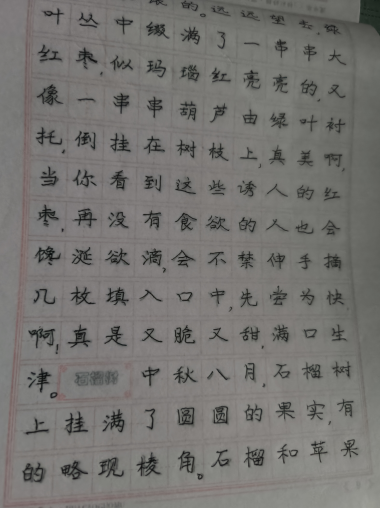 的。远远望去，绿
叶丛中缀满了一串串大
红枣，似玛瑙红亮亮的，又
像一串串葫芦由绿叶衬
托，倒挂在树枝上，真美啊，
当你看到这些诱人的红
枣，再没有食欲的人也会
馋涎欲滴，会不禁伸手摘
几枚填入口中，先尝为快，
啊！真是又脆又甜，满口生
津。石榴树中秋八月，石榴树
上挂满了圆圆的果实，有
的略现棱角。石榴和苹果